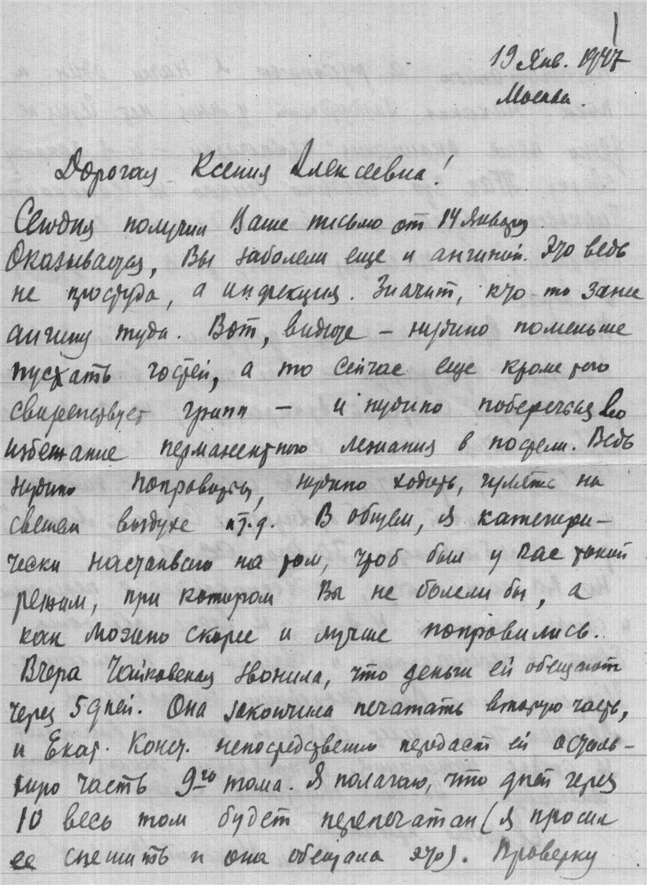 19 Янв. 1947
Москва.
Дорогая Ксения Алексеевна!
Сегодня получил Ваше письмо от 14 Января.
Оказывается, Вы заболели еще и ангиной. Это ведь
не простуда, а инфекция. Значит, кто-то занес
ангину туда. Вот, видите – нужно поменьше
пускать гостей, а то сейчас еще кроме того
свирепствует грипп – и нужно поберечься во
избежание перманентного лежания в постели. Ведь
нужно поправиться, нужно ходить, гулять на
свежем воздухе и т.д. В общем, я категори-
чески настаиваю на том, чтоб был у Вас такой
режим, при котором Вы не болели бы, а
как можно скорее и лучше поправились.
Вчера Чайковская звонила, что деньги ей обещают
через 5 дней. Она закончила печатать вторую часть,
и Екат. Конст. непосредственно передаст ей осталь-
ную часть 9го тома. Я полагаю, что дней через
10 весь том будет перепечатан (я просил
ее спешить и она обещала это). Проверку